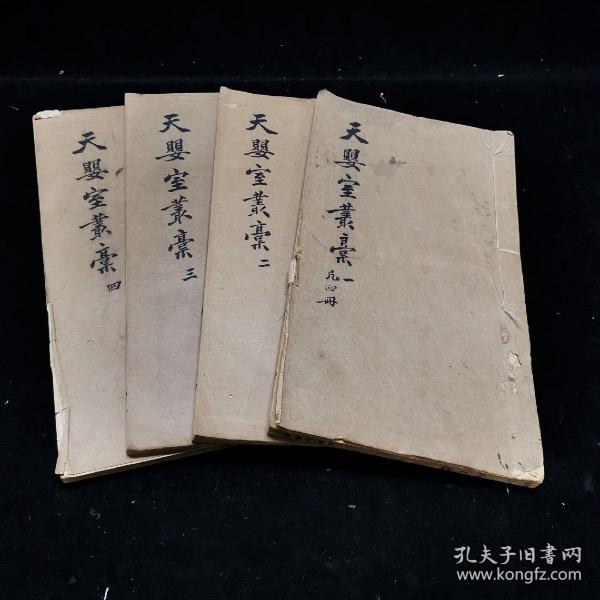 天嬰室叢稾一
凡四冊
天嬰室叢稾二
天嬰室叢稾三
天嬰室叢稾四
孔夫子旧書网
www.kongfz.com